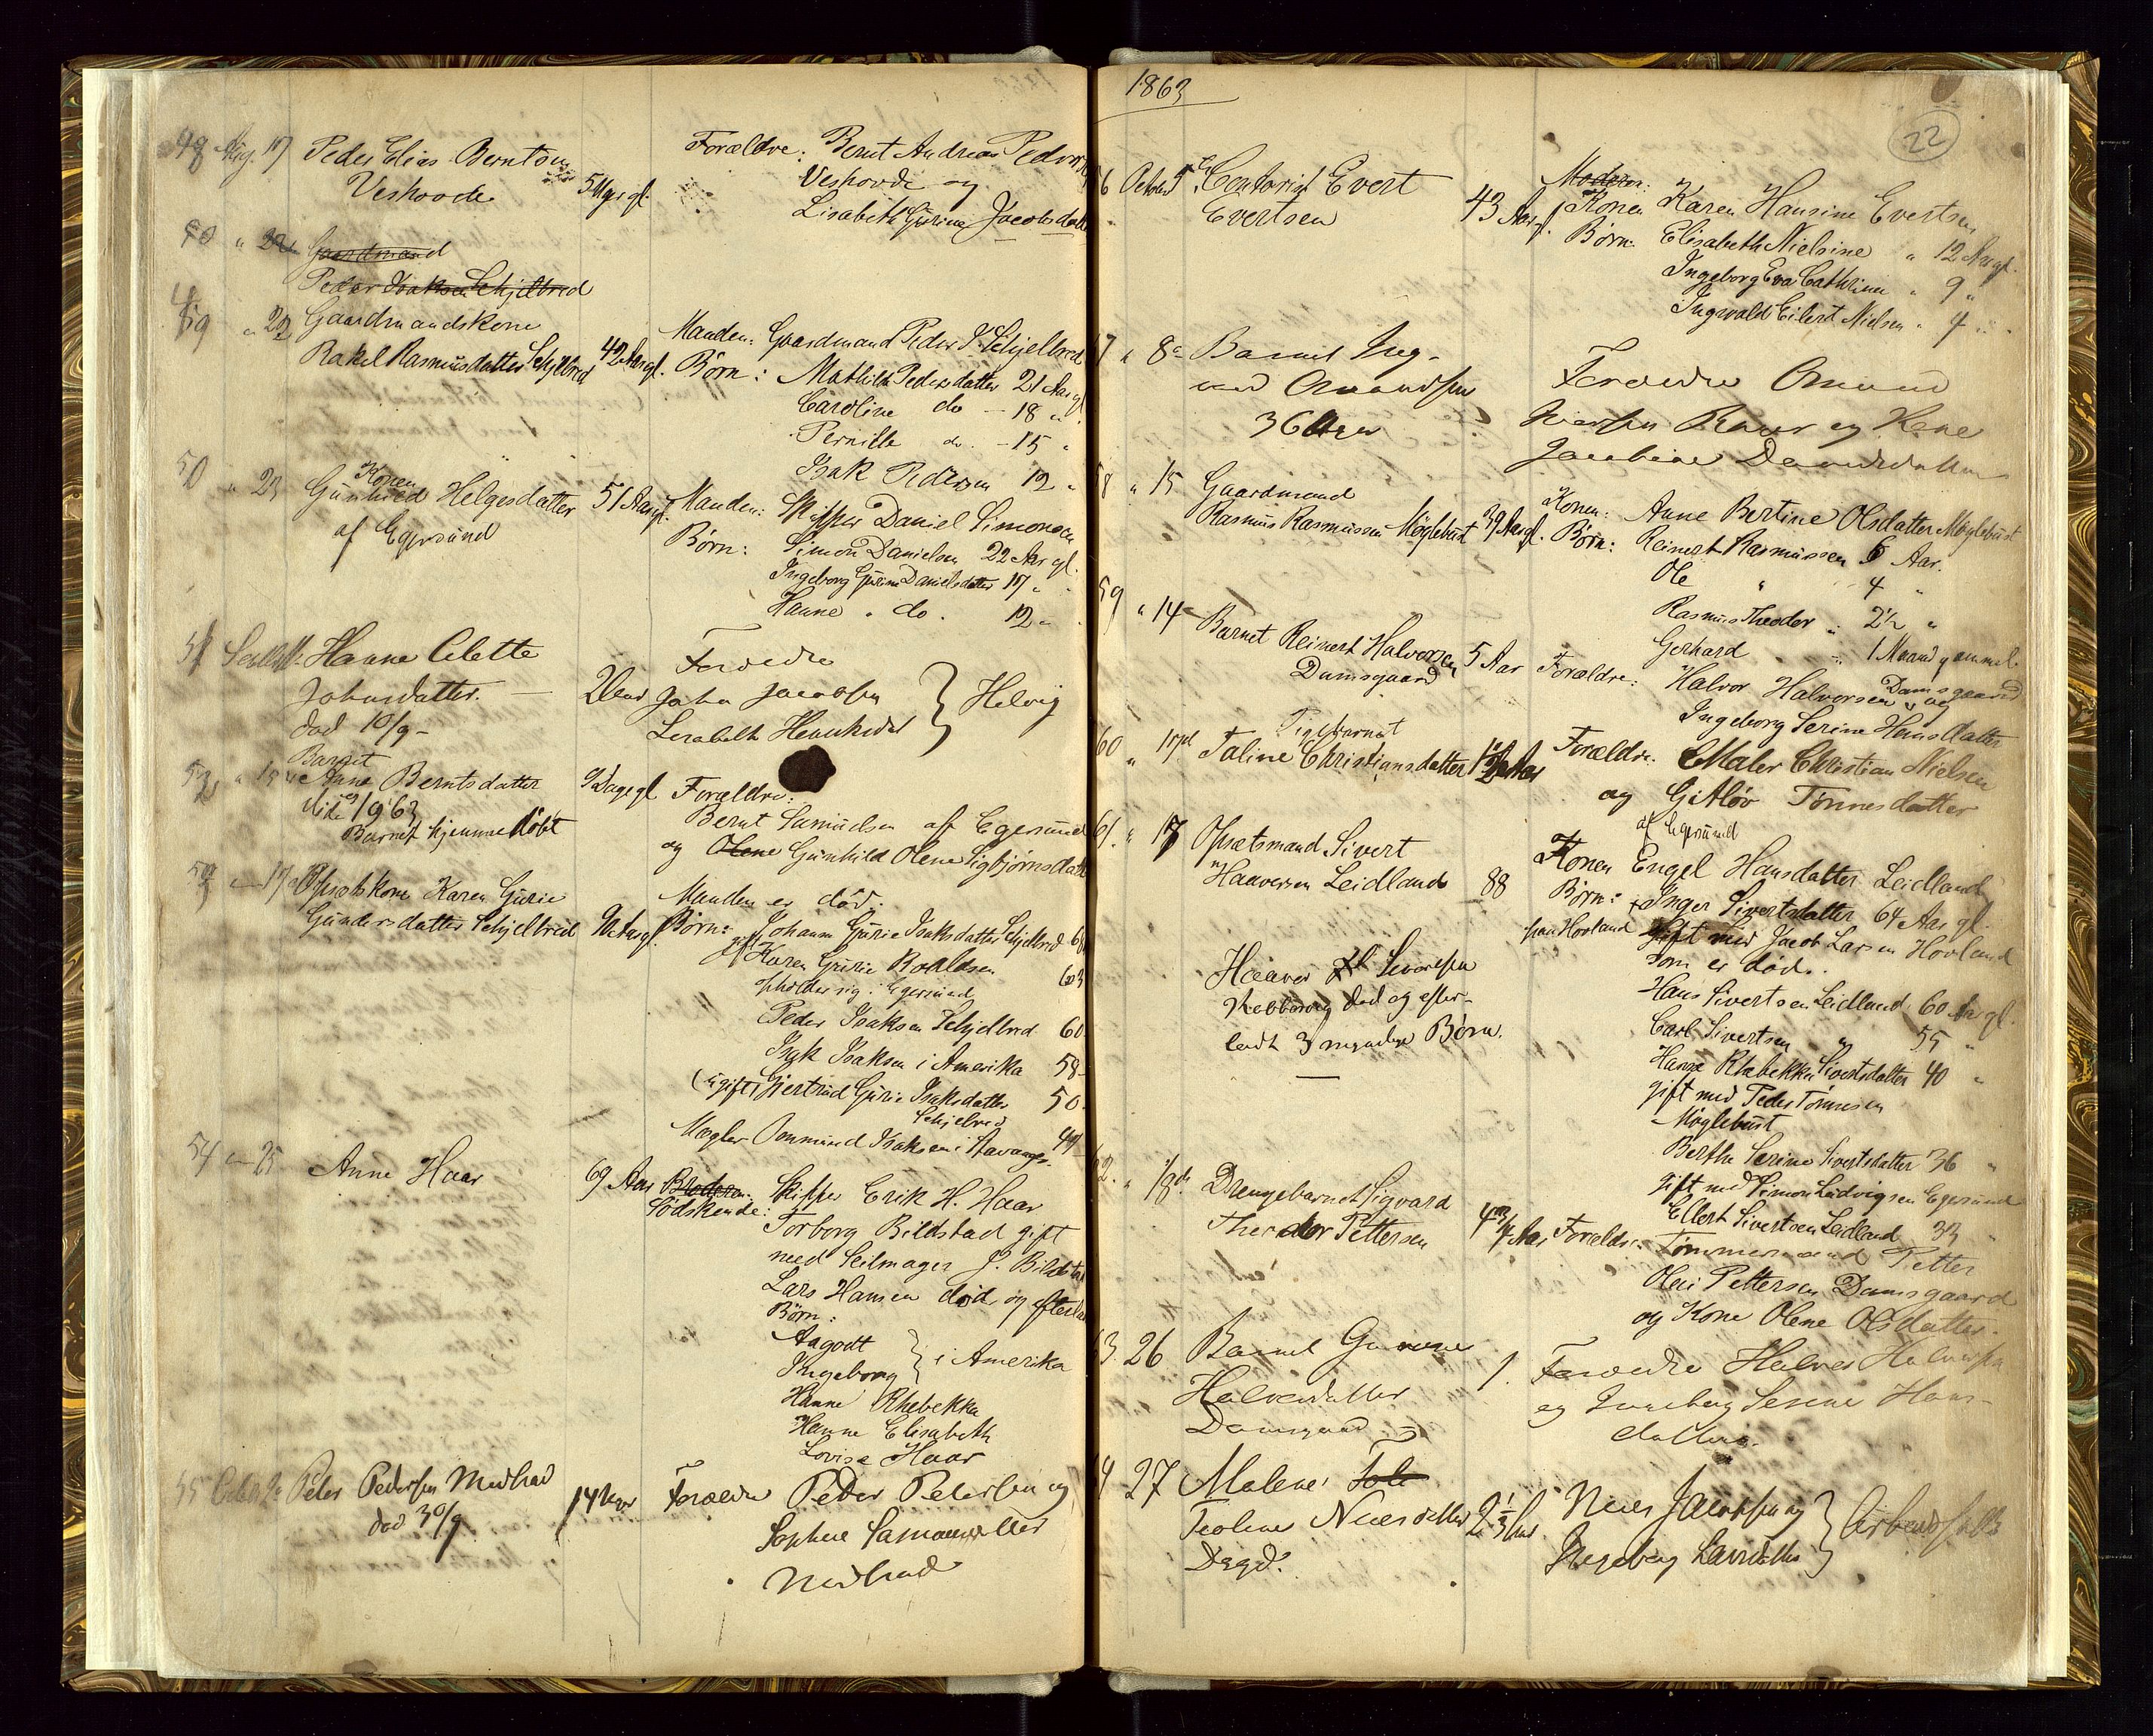 48 Aug. 17 Peder Elias Berntsen
Veshovde 5 Uger gl.
Forældre: Bernt Andreas Peders
Veshovde og
Lisabeth Gurine Jacobsdat
50 " 22 Gaardmand
Peder Isaksen Schjelbred
49 " 22 Gaardmandskone
Rakel Rasmusdatter Schjelbred 42 Aar gl.
Manden: Gaardmand Peder I. Schjelbred
Børn: Mathilde Pedersdatter 21 Aar gl
Caroline do - 18 "
Pernille do. - 15 "
Isak Pedersen 12 "
50 " 23 Konen
Gunhild Helgesdatter 51 Aar gl.
af Egersund
Manden: Skipper Daniel Simonsen
Børn: Simon Danielsen 22 Aar gl.
Ingeborg Gurine Danielsdatter 17 "
Hanne " do. 12 "
51 Hanne Celette
Johnsdatter.
død 10/9 -
Forældre
John Jacobsen
Lisabeth Henriksdat } Helvig
52 " Barnet
Ane Berntsdatter 9 Dage gl
1963
Barnet hjemmedøbt
Forældre:
Bernt Samuelsen af Egersund
og Olene Gunhild Olene Sigbjørnsdatt
53 " 17 Opsætskone Karen Gurie
Gundersdatter Schjelbred
Manden er død.
Børn: Johanne Gurie Isaksdatter Schjelbred 6
gift Karen Gurie Roaldsen 63
opholder sig i Egersund
Peder Isaksen Schjelbred 60
Isak Isaksen i Amerika 58
(ugift) Gjertrud Gurie Isaksdatter 50.
Schjelbred
Mægler Ommund Isaksen i Stavanger 47
54 " 25 Anne Haar 69 Aar
Broderen: Skipper Erik H. Haar
Sødskende: Torborg Bildstad gift
med Seilmager J. Bildsta
Lars Hansen død, og efterla
Børn:
Aagodt
Ingeborg } i Amerika
Hanne Rhebekka
Hanne Elisabeth
Lovise Haar
55 Octbr 2 Peter Pedersen Midbrød
død 30/9 14 Uger
Forældre Peder Pedersen og
Sophie Samuelsdatter
Midbrød
1863
22
56 Octobr 5 Contorist Evert
Evertsen 43 Aar gl.
Moderen:
Konen Karen Hansine Evertsen
Børn: Elisabeth Nielsine " 12 Aar gl.
Ingeborg Eva Cathrine " 9 "
Ingvald Eilert Nielsen " 4 "
57 " 8 Barnet Ing-
Omundsen
36 Uger
Forældre Omund
og
Jacobine Danielsdatter
58 " 15 Gaardmand
Rasmus Rasmussen Møglebust 39 Aar gl.
Konen: Anne Bertine Olsdatter Møglebust
Børn: Reinert Rasmussen 6 Aar.
Ole " 4 "
Rasmus Theodor " 2½ "
Gerhard " 1 Maaned gammel
59 " 14 Barnet Reinert Halvorsen 5 Aar
Damsgaard
Forældre: Halvor Halvorsen Damsgaard
og
Ingeborg Serine Hansdatter
60 " 17 Pigebarnet
Taline Christiansdatter
Forældre: Maler Christian Nielsen
og Gitløv Tønnesdatter
af Egersund
61. " 17 Opsætsmand Sivert
Haaversen Leidland 88
Konen Engel Hansdatter Leidland
Børn: Inger Sivertsdatter 64 Aar gl.
paa Hovland gift med Jacob Larsen Hovland
som er død.
Hans Sivertsen Leidland 60 Aar gl.
Carl Sivertsen " 55 "
Hanne Rhebekka Sivertsdatter 40 "
gift med Peder Tønnesen
Møglebust
Berthe Serine Sivertsdatter 36 "
gift med Simon Ludvigsen Egersund
Ellert Sivertsen Leidland 33 "
Haaver Sivertsen
død og efter-
ladt 3 myndige Børn.
62. " 18de Drengebarnet Sigvard
Theodor Pettersen
Forældre: Tømmermand Petter
Olai Pettersen Damsgaard
og Kone Olene Olsdatter.
63. 26 Barnet Gurine
Halvorsdatter
Damsgaard 1.
Forældre Halvor Halvorsen
og Ingeborg Serine Hans-
datter.
64 27 Malene Tole
Teoline Nielsdatter
Dsgd.
Niels Jacobsen og
Ingeborg Larsdatter }